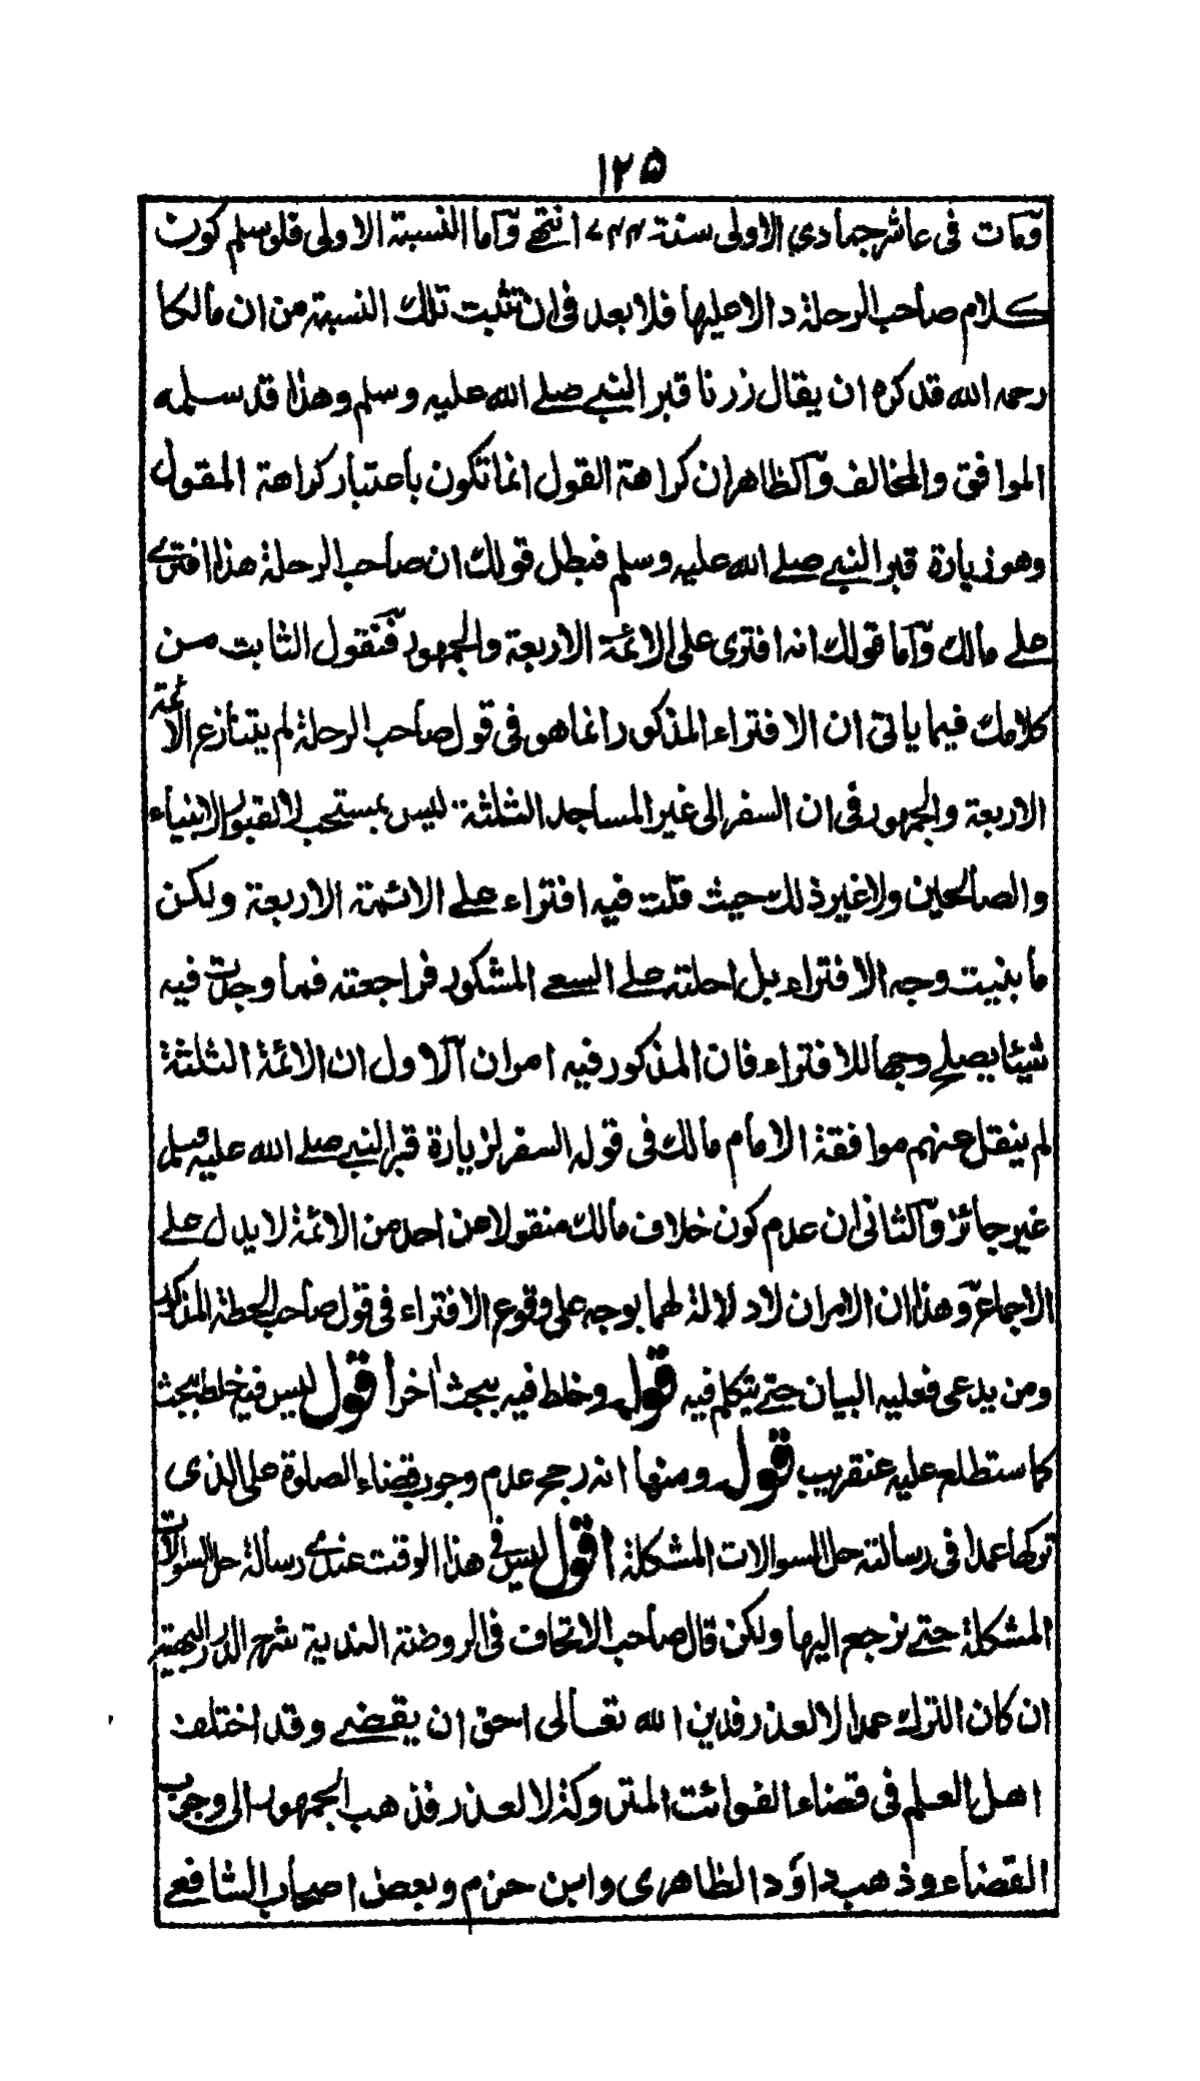 ١٢٥
ومات فى عاشر جمادي الاولى سنة ٧٤٤ انتهى وأما النسبة الاولى فلو سلم كون
كلام صاحب الرحلة دالا عليها فلا بعد فى ان تثبت تلك النسبة من ان مالكا
رحمه الله قد كره ان يقال زرنا قبر النبي صلے الله عليه وسلم وهذا قد سلمه
الموافق والمخالف وآلظاهر ان كراهة القول انما تكون باعتبار كراهة المقول
وهو زيارة قبر النبي صلے الله عليه وسلم فبطل قولك ان صاحب الرحلة هذا افترى
علے مالك وآما قولك انه افترى على الائمة الاربعة والجمهور فنقول الثابت من
كلامك فيما ياتى ان الافتراء المذكور انما هو فى قول صاحب الرحلة لم يتنازع الائمة
الاربعة والجمهور فى ان السفر الى غير المساجد الثلثة ليس بمستحب لا لقبور الانبياء
والصالحين ولا غير ذلك حيث قلت فيه افتراء علے الائمة الاربعة ولكن
ما بنيت وجه الافتراء بل احلته علے السعے المشكور فراجعته فما وجدت فيه
شيئا يصلح وجها للافتراء فان المذكور فيه امران آلاول ان الائمة الثلثة
لم ينقل عنهم موافقة الامام مالك فى قوله السفر لزيارة قبر النبي صلے الله عليه وسلم
غير جائز وآلثانى ان عدم كون خلاف مالك منقولا عن احد من الائمة لا يدل علے
الاجماع وهذان الامران لا دلالة لهما بوجه على وقوع الافتراء فى قول صاحب الحطة المذكور
ومن يدعى فعليه البيان حتے يتكلم فيه قوله وخلط فيه ببحث اخر اقول ليس فيه خلط بحث
كما ستطلع عليه عنقريب قوله ومنها انه رجح عدم وجوب قضاء الصلوة على الذى
تركها عمدا فى رسالته حل السوالات المشكلة اقول ليس فى هذا الوقت عندى رسالة حل السوالات
المشكلة حتے نرجع اليها ولكن قال صاحب الاتحاف فى الروضة الندية شرح الدرر البهية
ان كان الترك عمدا لا لعذر فدين الله تعالى احق ان يقضے وقد اختلف
اهل العلم فى قضاء الفوائت المتروكة لا لعذر فذهب الجمهور الى وجوب
القضاء وذهب داؤد الظاهرى وابن حزم وبعض اصحاب الشافعے